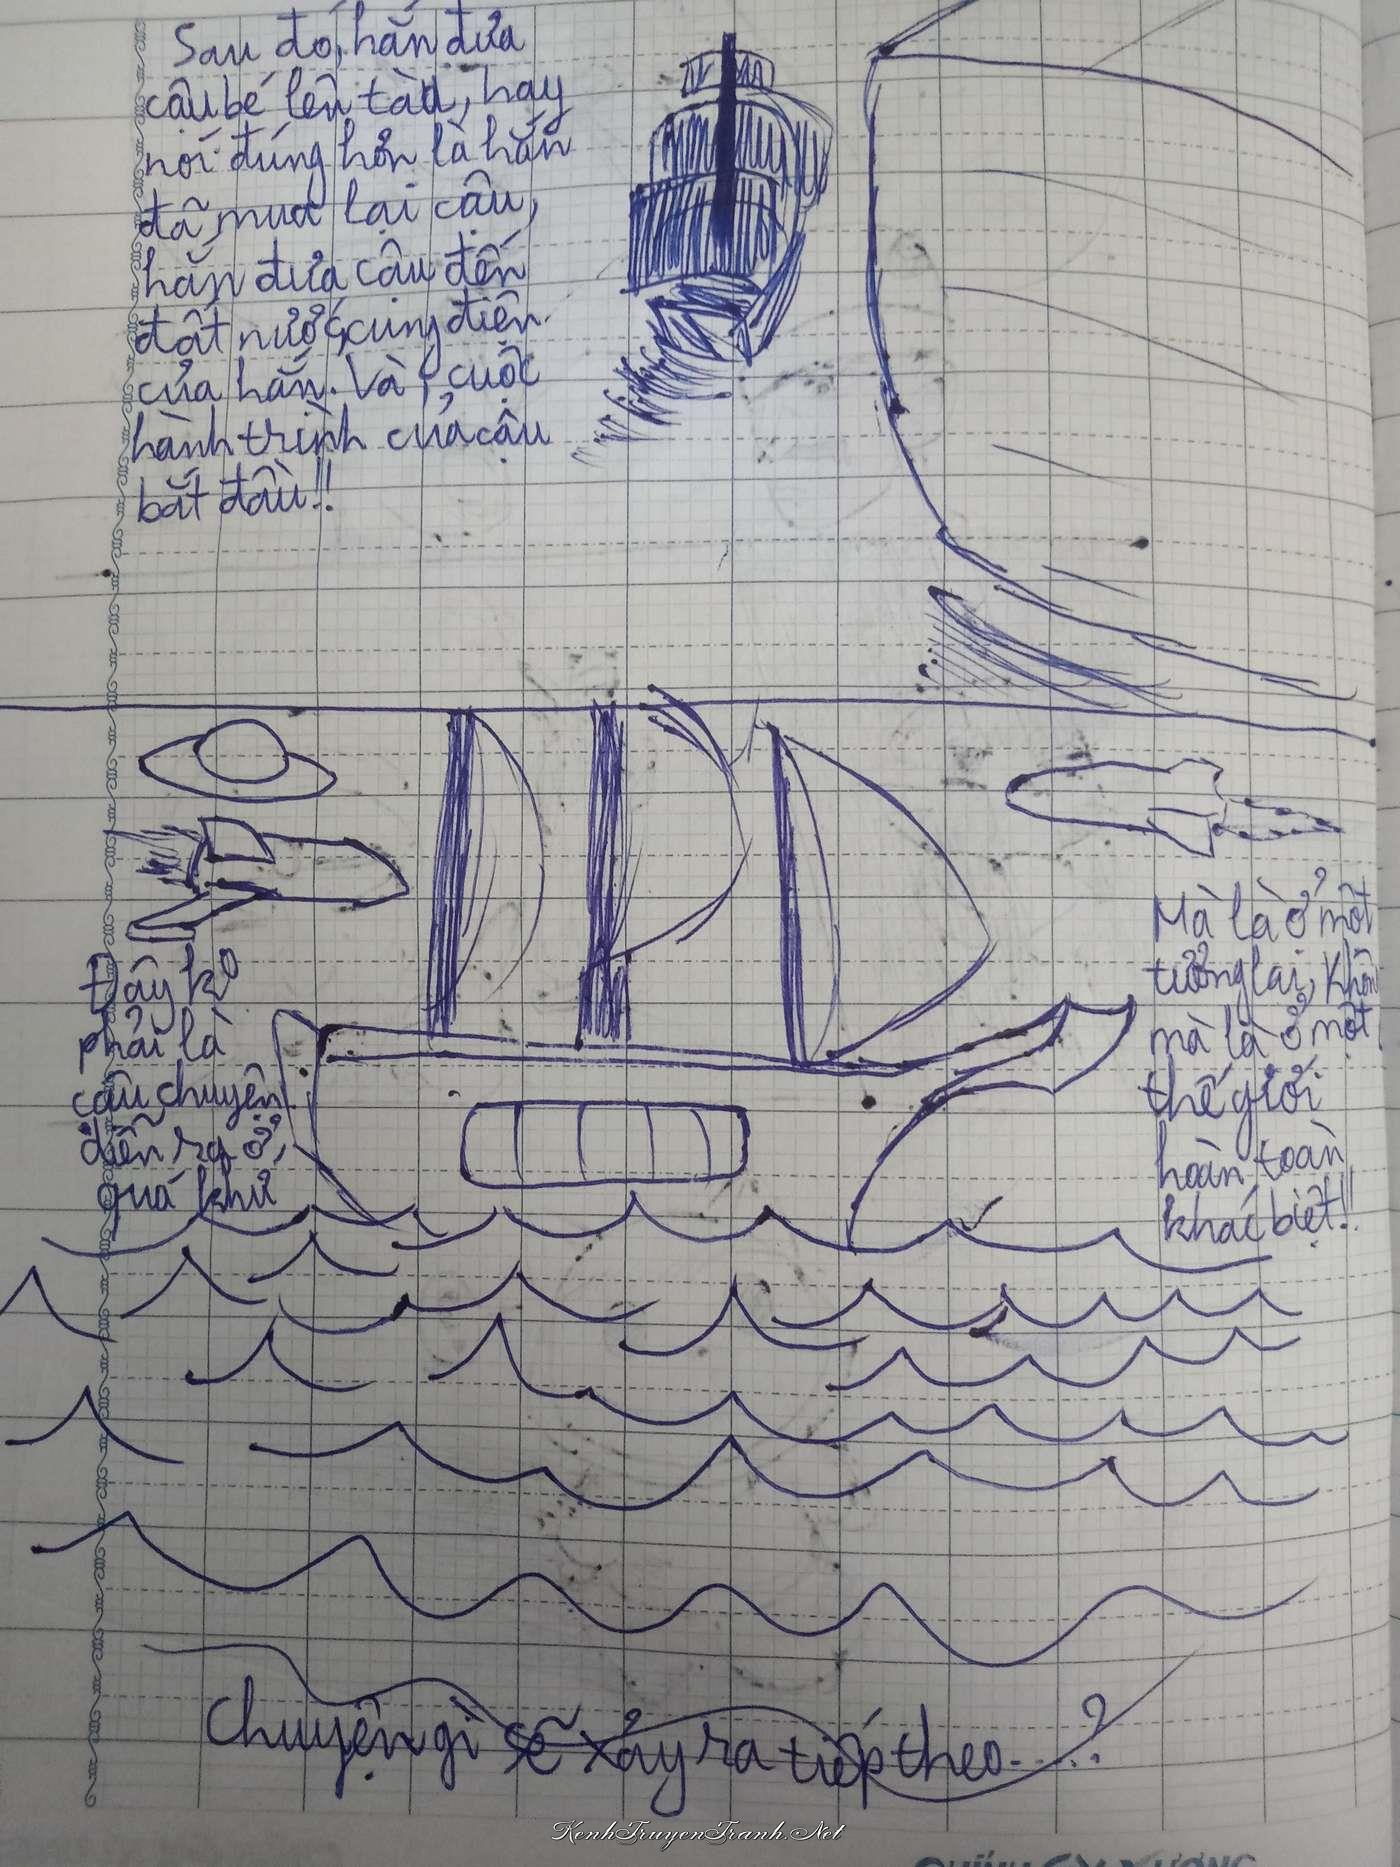 Sau đó, hắn đưa
cậu bé lên tàu, hay
nói đúng hơn là hắn
đã mua lại cậu,
hắn đưa cậu đến
đất nước, cung điện
của hắn. Và, cuộc
hành trình của cậu
bắt đầu!!
Đây ko
phải là
câu chuyện
diễn ra ở
quá khứ
Mà là ở một
tương lai, Khôn
mà là ở một
thế giới
hoàn toàn
khác biệt!!
Chuyện gì sẽ xảy ra tiếp theo.....?
KenhTruyenTranh.Net